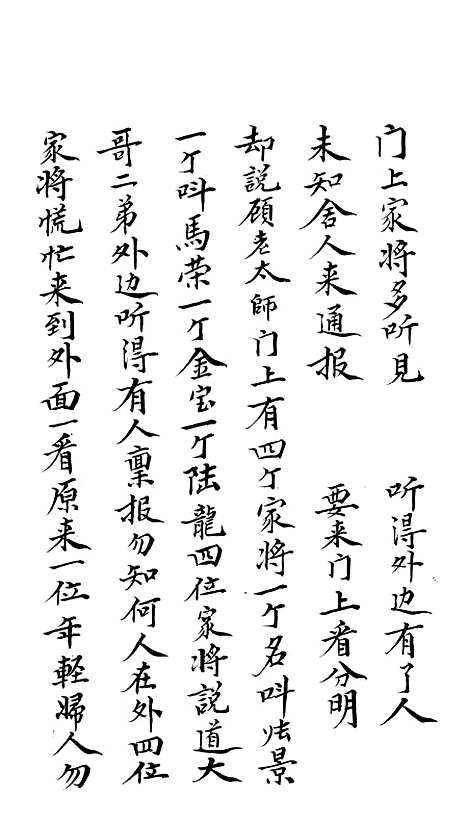 门上家将多听見　听淂外边有了人
未知舍人来通报　要来门上看分明
却説顾老太師门上有四个家将一个名呌炗景
一个呌馬荣一个金宝一个陆龍四位家将説道大
哥二弟外边听淂有人禀报勿知何人在外四位
家将慌忙来到外面一看原来一位年軽婦人勿